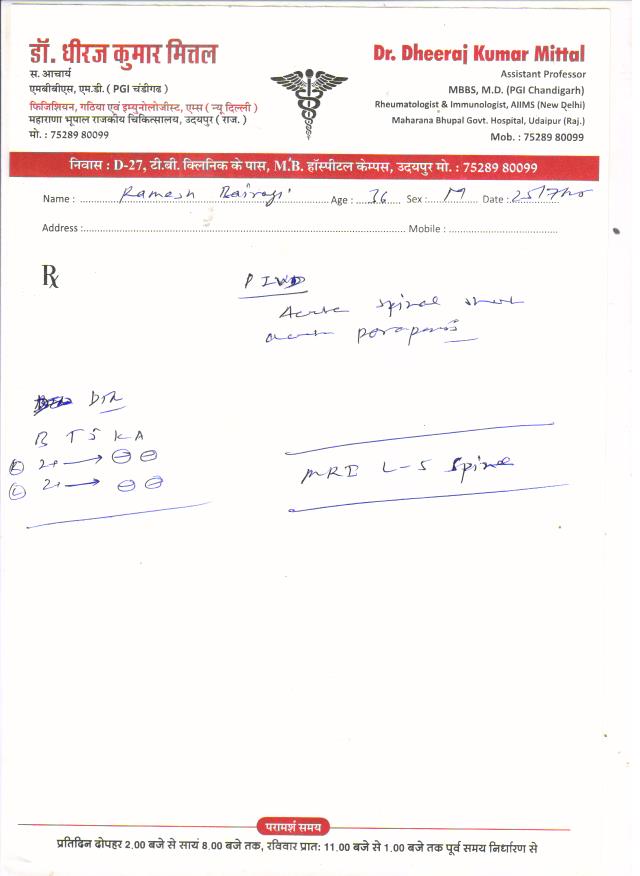 डॉ. धीरज कुमार मित्तल
स. आचार्य
एमबीबीएस, एम.डी. ( PGI चंडीगढ )
फिजिशियन, गठिया एवं इम्युनोलोजीस्ट, एम्स ( न्यू दिल्ली )
महाराणा भूपाल राजकीय चिकित्सालय, उदयपुर ( राज. )
मो. : 75289 80099
Dr. Dheeraj Kumar Mittal
Assistant Professor
MBBS, M.D. (PGI Chandigarh)
Rheumatologist & Immunologist, AIIMS (New Delhi)
Maharana Bhupal Govt. Hospital, Udaipur (Raj.)
Mob. : 75289 80099
निवास : D-27, टी.बी. क्लिनिक के पास, M.B. हॉस्पीटल केम्पस, उदयपुर मो. : 75289 80099
Name : Ramesh Bairagi Age : 36 Sex : M Date : 25/7/20
Address : Mobile :
Rx
Acute spinal
acute
DTR
B T S K A
R 2+ → ⊖ ⊖
L 2+ → ⊖ ⊖
MRI L-S Spine
परामर्श समय
प्रतिदिन दोपहर 2.00 बजे से सायं 8.00 बजे तक, रविवार प्रात: 11.00 बजे से 1.00 बजे तक पूर्व समय निर्धारण से